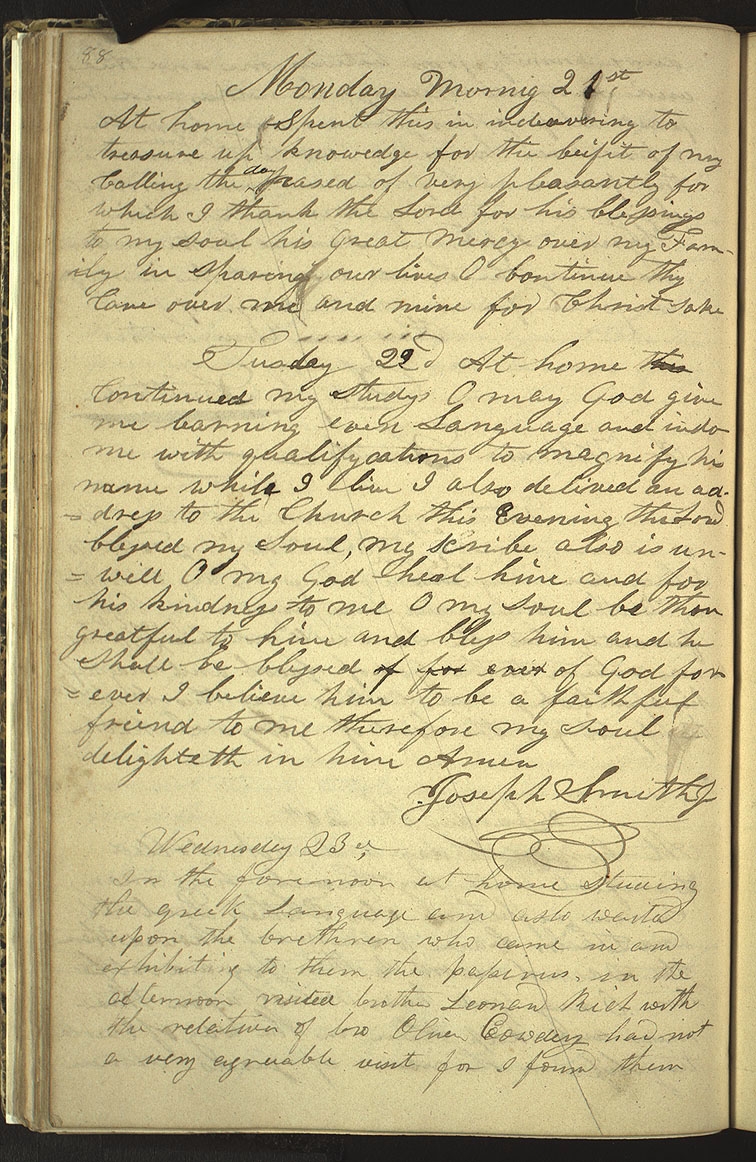 88
Monday Mornig 21st
At home Spent this in indeavering to
treasure up knowedge for the beifit of my
Calling the day pased of very pleasantly for
which I thank the Lord for his blessings
to my soul his great mercy over my Fam-
ily in sparing our lives O Continue thy
Care over me and mine for Christ sake
Tusday 22d At home this
Continued my studys O may God give
me learning even Language and indo
me with qualifycations to magnify his
name while I live I also delived an ad-
=dress to the Church this Evening the Lord
blessed my Soul, my scribe also is un-
=well O my God heal him and for
his kindness to me O my soul be thou
greatful to him and bless him and he
shall be blessed of for ever of God for
=ever I believe him to be a faithful
friend to me therefore my soul
delighteth in him Amen
Joseph Smith Jr
Wednesday 23d,
In the forenoon at home studing
the greek Language and also waited
upon the brethren who came in and
exhibiting to them the papirus, in the
afternoon visited brother Leonard Rich with
the relatives of bro Oliver Cowdery had not
a very agreuable visit for I found them